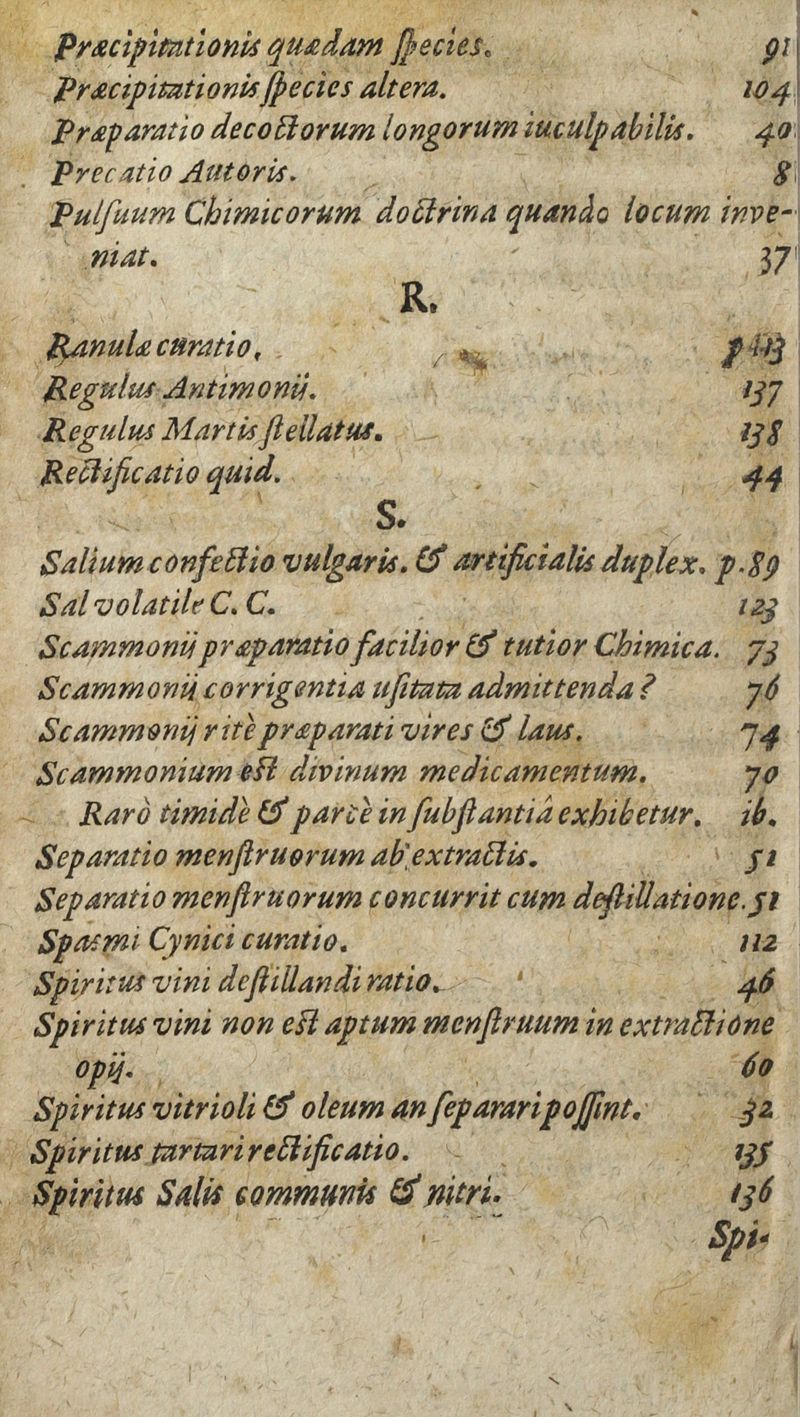 Præcipitationis quædam ſpecies. 91
Præcipitationis ſpecies altera. 104
Præparatio decoctorum longorum iuculpabilis. 40
Precatio Autoris. 8
Pulſuum Chimicorum doctrina quando locum inve-
niat. 37
R.
Ranulæ curatio,
Regulus Antimonij. 137
Regulus Martis ſtellatus. 138
Rectificatio quid. 44
S.
Salium confectio vulgaris. & artificialis duplex. p.89
Sal volatile C. C. 123
Scammonij præparatio facilior & tutior Chimica. 73
Scammonij corrigentia uſitata admittenda? 76
Scammonij ritè præparati vires & laus. 74
Scammonium est divinum medicamentum. 70
Rarò timidè & parcè in ſubſtantiâ exhibetur. ib.
Separatio menſtruorum ab extractis. 51
Separatio menſtruorum concurrit cum deſtillatione. 51
Spasmi Cynici curatio. 112
Spiritus vini deſtillandi ratio. 46
Spiritus vini non est aptum menſtruum in extractione
opij. 60
Spiritus vitrioli & oleum an ſeparari poſſint. 32
Spiritus tartari rectificatio. 135
Spiritus Salis communis & nitri. 136
Spi-